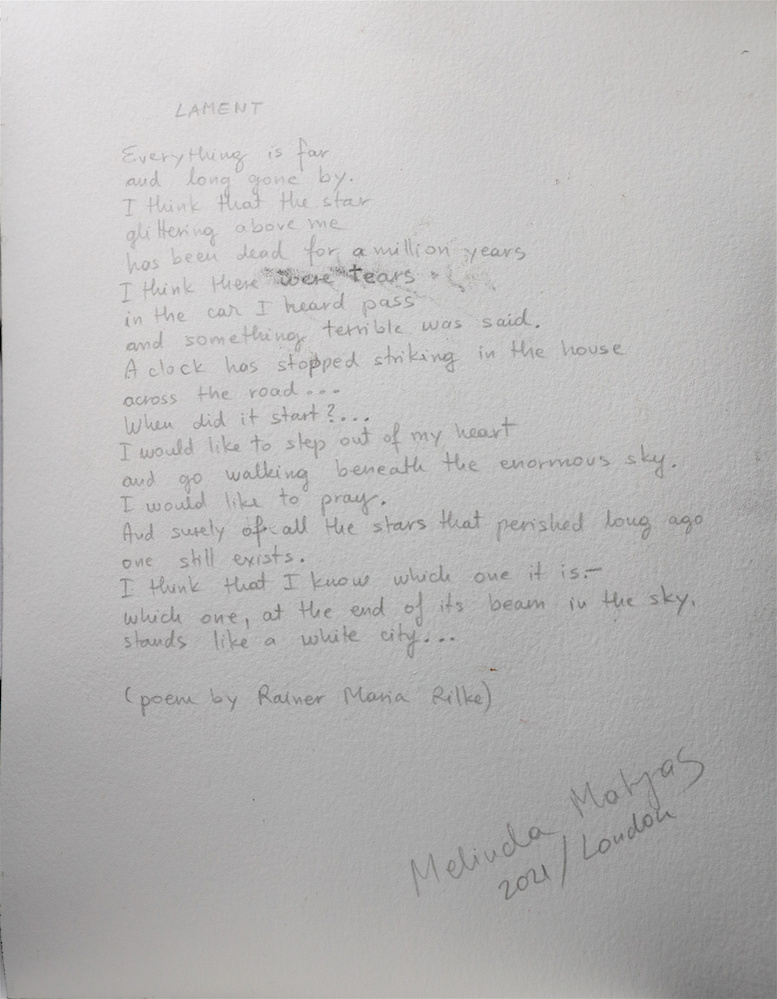 LAMENT
Everything is far
and long gone by.
I think that the star
glittering above me
has been dead for a million years
I think there were tears
in the car I heard pass
and something terrible was said.
A clock has stopped striking in the house
across the road...
When did it start?...
I would like to step out of my heart
and go walking beneath the enormous sky.
I would like to pray.
And surely of all the stars that perished long ago
one still exists.
I think that I know which one it is.-
which one, at the end of its beam in the sky,
stands like a white city...
(poem by Rainer Maria Rilke)
Melinda Matyas
2021/London